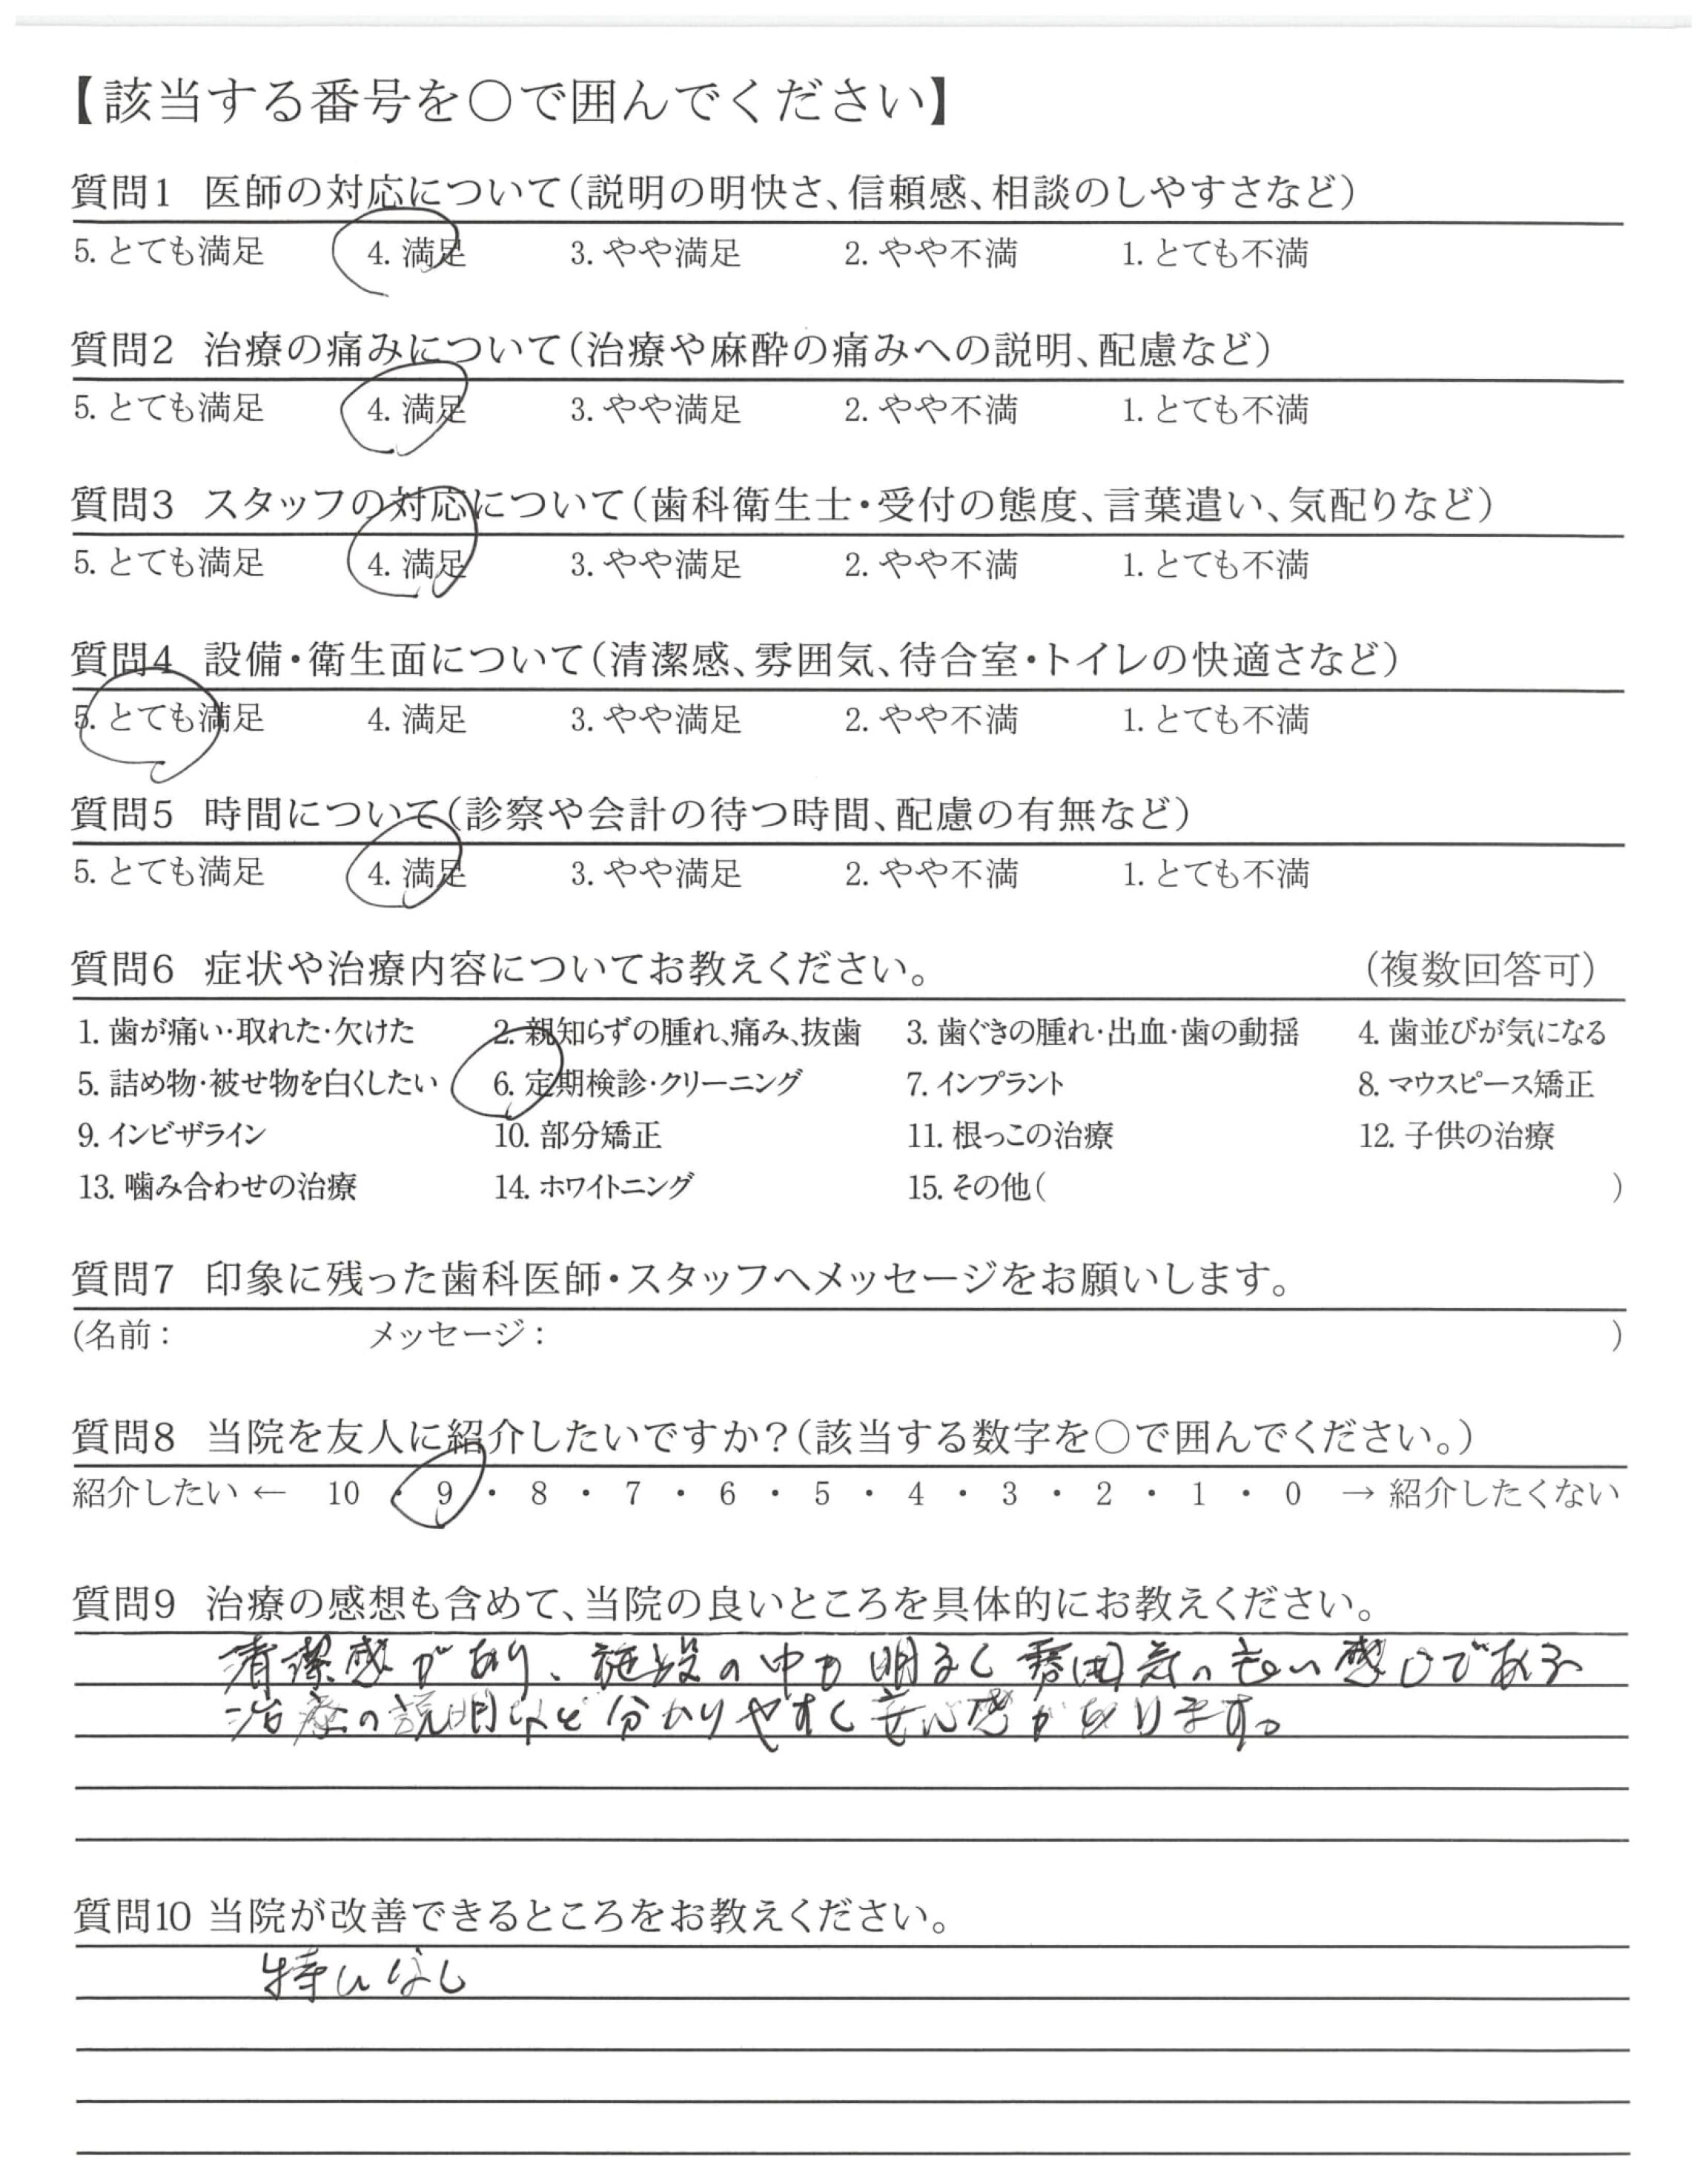 【該当する番号を○で囲んでください】
質問1 医師の対応について(説明の明快さ、信頼感、相談のしやすさなど)
5. とても満足 4. 満足 3. やや満足 2. やや不満 1. とても不満
質問2 治療の痛みについて(治療や麻酔の痛みへの説明、配慮など)
5. とても満足 4. 満足 3. やや満足 2. やや不満 1. とても不満
質問3 スタッフの対応について(歯科衛生士・受付の態度、言葉遣い、気配りなど)
5. とても満足 4. 満足 3. やや満足 2. やや不満 1. とても不満
質問4 設備・衛生面について(清潔感、雰囲気、待合室・トイレの快適さなど)
5. とても満足 4. 満足 3. やや満足 2. やや不満 1. とても不満
質問5 時間について(診察や会計の待つ時間、配慮の有無など)
5. とても満足 4. 満足 3. やや満足 2. やや不満 1. とても不満
質問6 症状や治療内容についてお教えください。 (複数回答可)
1. 歯が痛い・取れた・欠けた 2. 親知らずの腫れ、痛み、抜歯 3. 歯ぐきの腫れ・出血・歯の動揺 4. 歯並びが気になる
5. 詰め物・被せ物を白くしたい 6. 定期検診・クリーニング 7. インプラント 8. マウスピース矯正
9. インビザライン 10. 部分矯正 11. 根っこの治療 12. 子供の治療
13. 噛み合わせの治療 14. ホワイトニング 15. その他( )
質問7 印象に残った歯科医師・スタッフへメッセージをお願いします。
(名前: メッセージ: )
質問8 当院を友人に紹介したいですか?(該当する数字を○で囲んでください。)
紹介したい ← 10 ・ 9 ・ 8 ・ 7 ・ 6 ・ 5 ・ 4 ・ 3 ・ 2 ・ 1 ・ 0 → 紹介したくない
質問9 治療の感想も含めて、当院の良いところを具体的にお教えください。
清潔感があり、施設の中も明るく雰囲気の良い感じである
治療の説明なども分かりやすく安心感があります。
質問10 当院が改善できるところをお教えください。
特になし